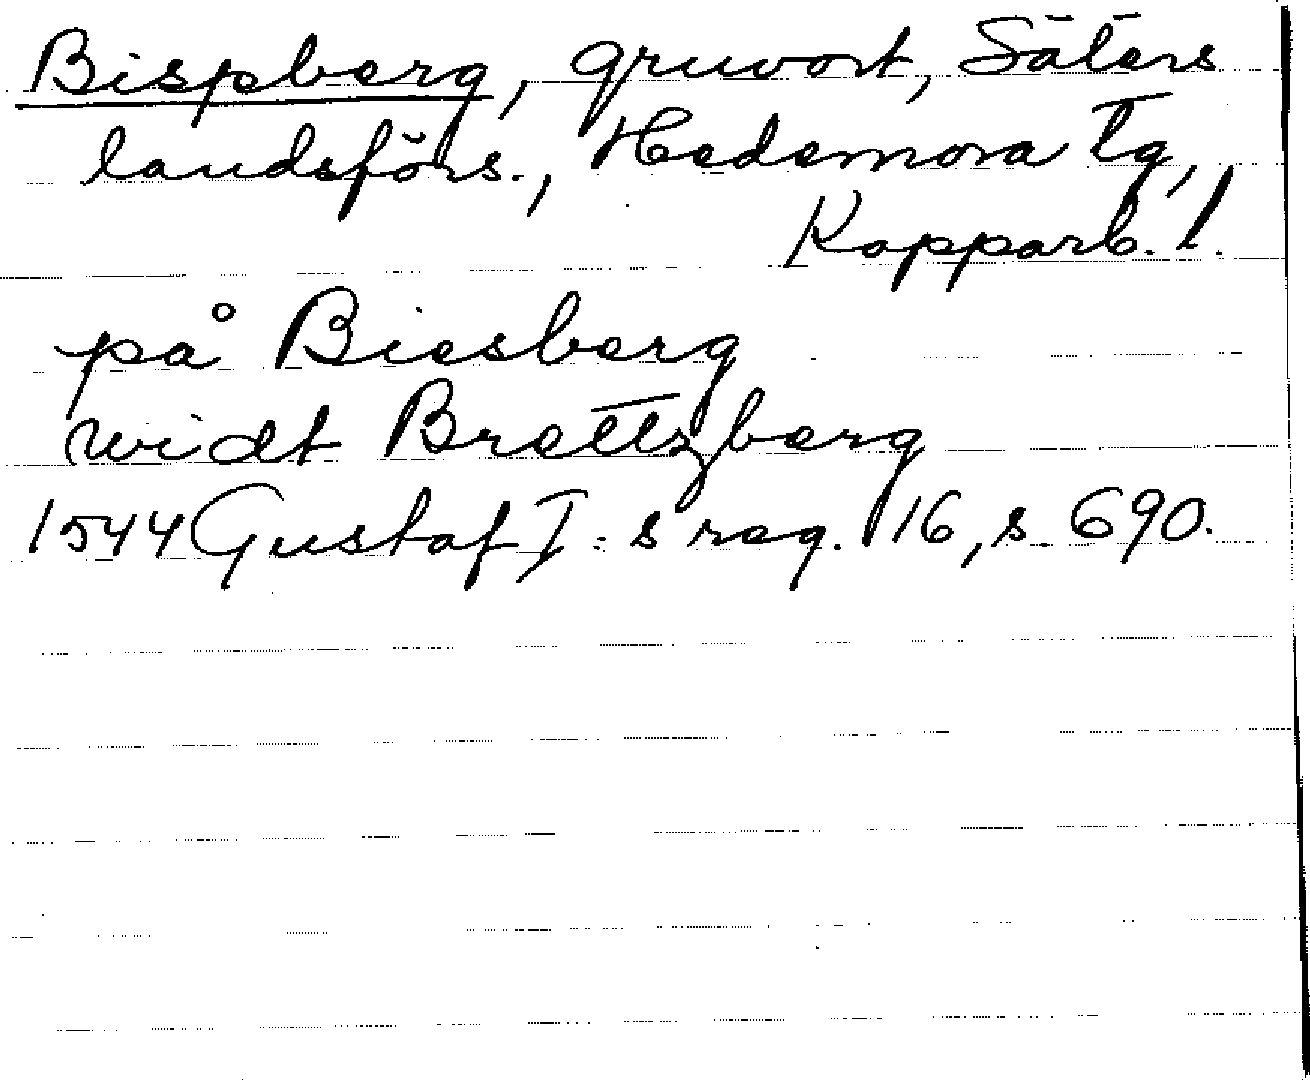 Bispberg, gruvort, Säters
landsförs., Hedemora tg,
Kopparb. l.
på Biesberg
widt Brettzberg
1544 Gustaf I:s reg. 16, s. 690.